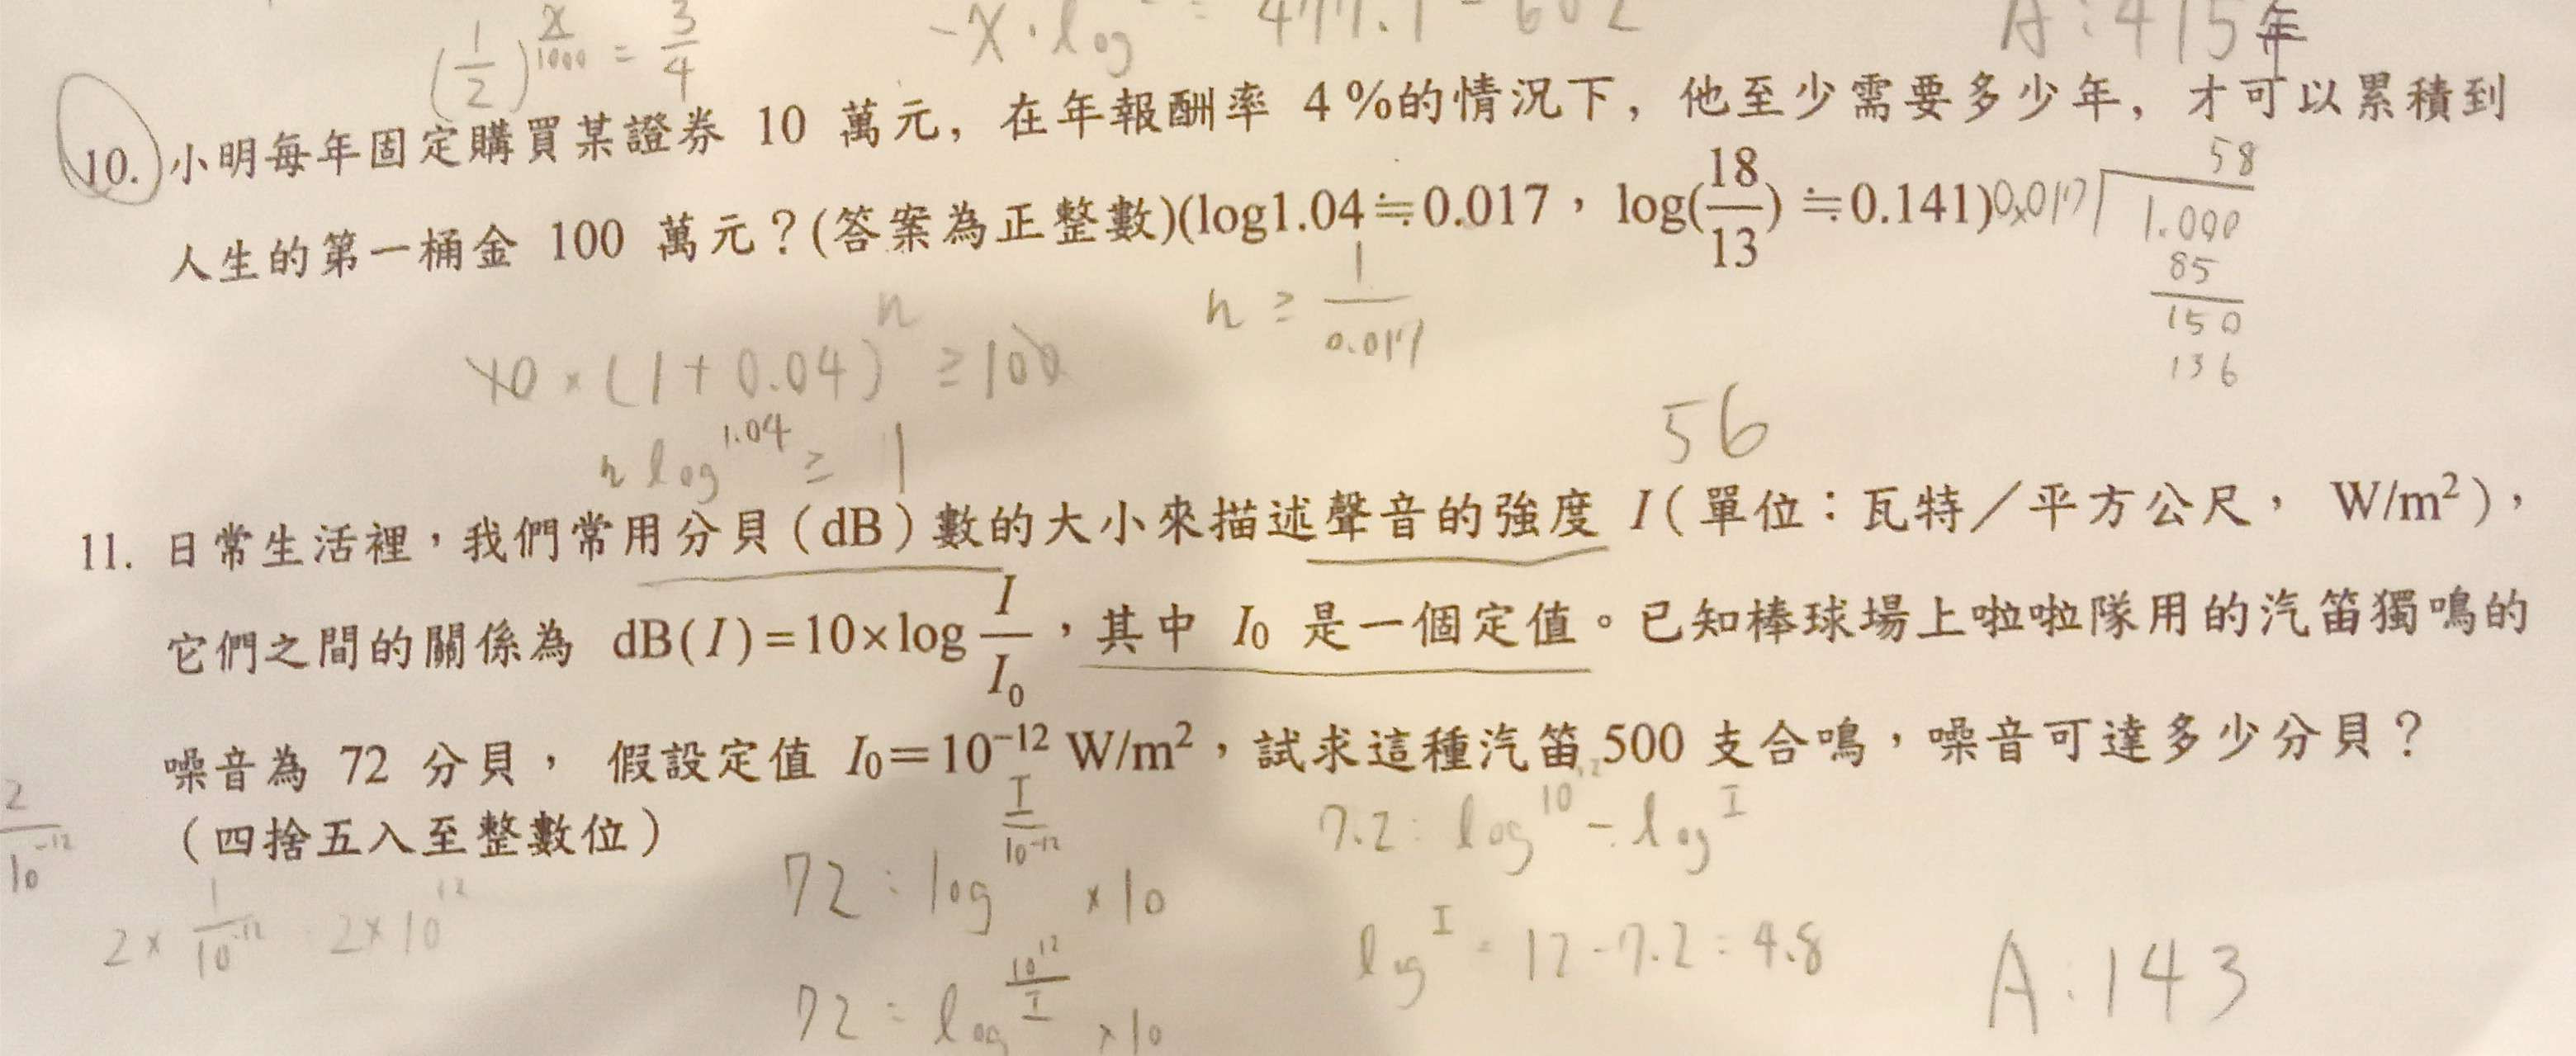 (1/2)^(x/1000) = 3/4
-x·log = 477.1 - 602
A:415年
10. 小明每年固定購買某證券 10 萬元，在年報酬率 4%的情況下，他至少需要多少年，才可以累積到
人生的第一桶金 100 萬元？(答案為正整數)(log1.04≒0.017，log(18/13)≒0.141)
58
0.017 1.000
85
150
136
n ≥ 1/0.017
10×(1+0.04)^n ≥ 100
n log^1.04 ≥ 1
56
11. 日常生活裡，我們常用分貝(dB)數的大小來描述聲音的強度 I(單位：瓦特／平方公尺， W/m²)，
它們之間的關係為 dB(I)=10×log I/I₀，其中 I₀ 是一個定值。已知棒球場上啦啦隊用的汽笛獨鳴的
噪音為 72 分貝， 假設定值 I₀=10⁻¹² W/m²，試求這種汽笛 500 支合鳴，噪音可達多少分貝？
(四捨五入至整數位)
2/10^-12
2× 1/10^-12 2×10^12
72 = log^(I/10^-12) ×10
72 = log^(10^12/I) ×10
7.2 = log^10^12 - log^I
log^I = 12-7.2=4.8
A:143